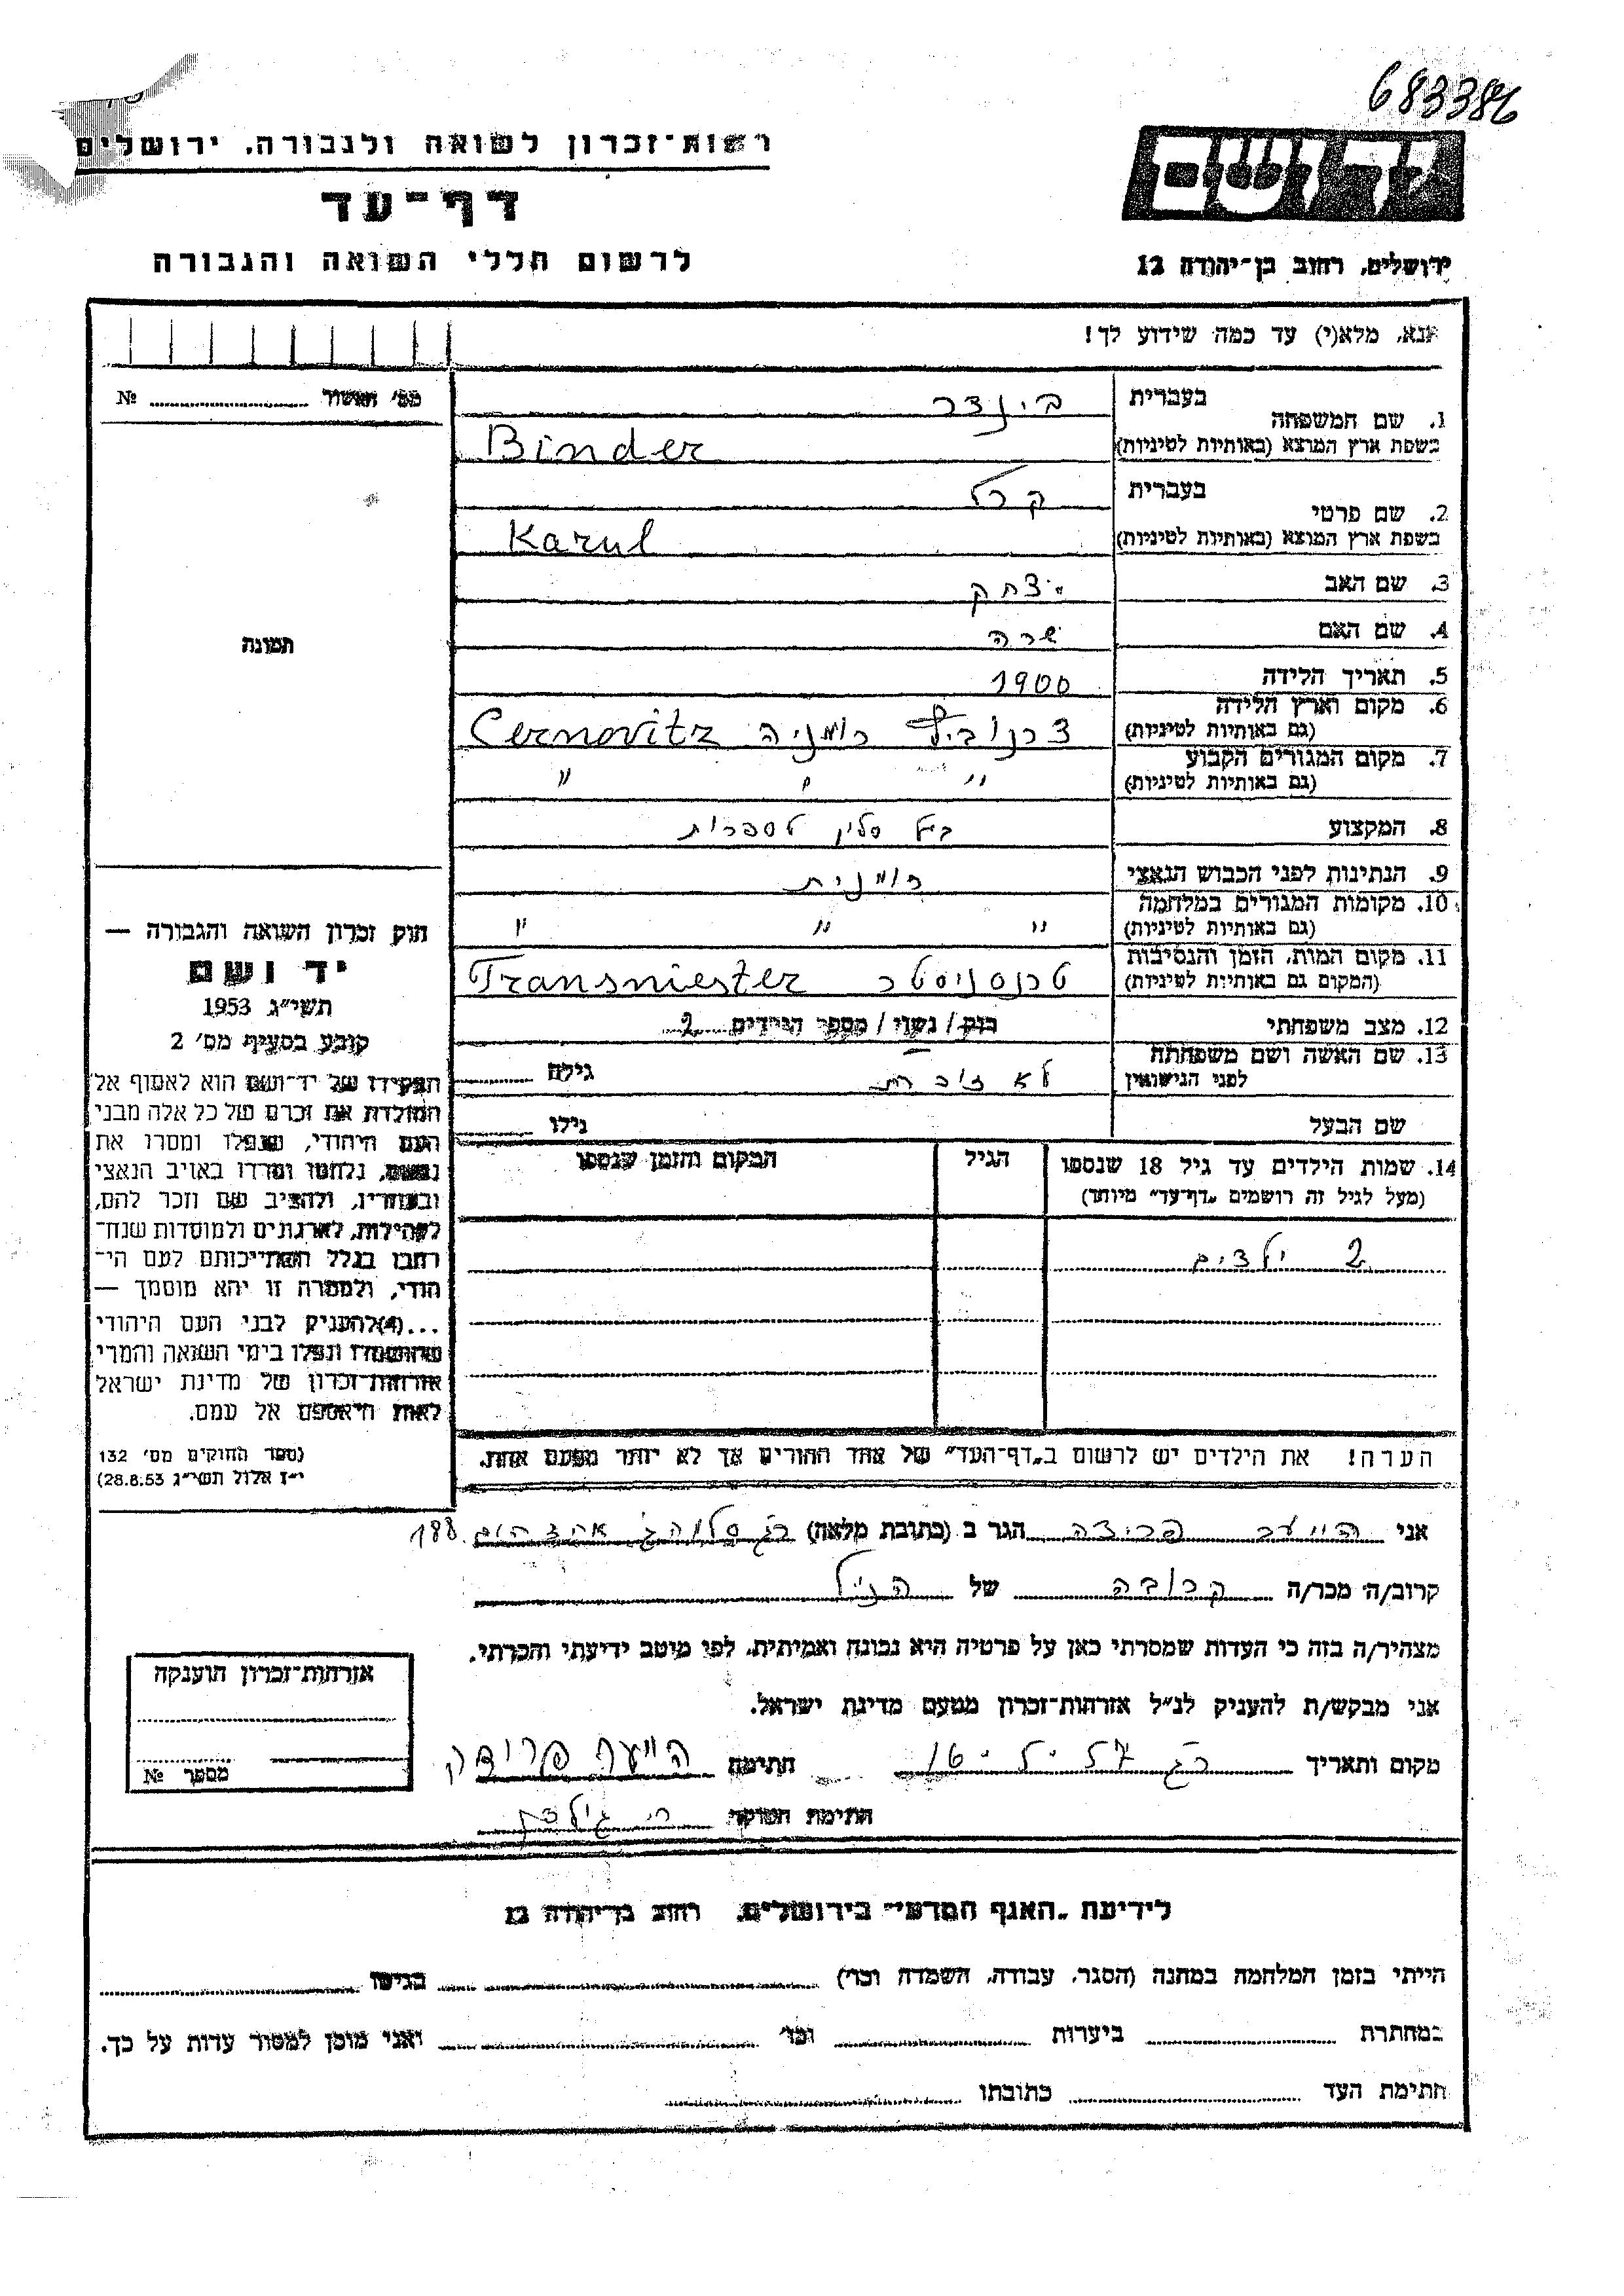 683386
רשות־זכרון לשואה ולגבורה, ירושלים
דף־עד
לרשום חללי השואה והגבורה
ידושם
ירושלים, רחוב בן־יהודה 12
אנא, מלא(י) עד כמה שידוע לך!
מס' האשור № 
1. שם המשפחה בעברית בינדר
בשפת ארץ המוצא (באותיות לטיניות) Binder
2. שם פרטי בעברית קרל
בשפת ארץ המוצא (באותיות לטיניות) Karul
3. שם האב יצחק
4. שם האם שרה
5. תאריך הלידה 1900
6. מקום וארץ הלידה (גם באותיות לטיניות) רומניה Cernovitz
7. מקום המגורים הקבוע (גם באותיות לטיניות) " " "
8. המקצוע בעל סלון לספרות
9. הנתינות לפני הכבוש הנאצי רומנית
10. מקומות המגורים במלחמה (גם באותיות לטיניות) " " "
11. מקום המות, הזמן והנסיבות (המקום גם באותיות לטיניות) טרנסניסטר Transniester
12. מצב משפחתי רוק / נשוי / מספר הילדים 2
13. שם האשה ושם משפחתה לפני הנישואין לא זוכרת גילה
שם הבעל גילו
14. שמות הילדים עד גיל 18 שנספו (מעל לגיל זה רושמים „דף־עד" מיוחד) הגיל המקום והזמן שנספו
2 ילדים
הערה! את הילדים יש לרשום ב„דף־העד" של אחד ההורים אך לא יותר מפעם אחת.
תמונה
חוק זכרון השואה והגבורה —
יד ושם
תשי"ג 1953
קובע בסעיף מס' 2
תפקידו של יד־ושם הוא לאסוף אל
המולדת את זכרם של כל אלה מבני
העם היהודי, שנפלו ומסרו את
נפשם, נלחמו ומרדו באויב הנאצי
ובעוזריו, ולהציב שם וזכר להם,
לקהילות, לארגונים ולמוסדות שנח־
רבו בגלל השתייכותם לעם הי־
הודי, ולמטרה זו יהא מוסמך —
...(4) להעניק לבני העם היהודי
שהושמדו ונפלו בימי השואה והמרי
אזרחות־זכרון של מדינת ישראל
לאות היאספם אל עמם.
(ספר החוקים מס' 132
י"ז אלול תשי"ג 28.8.53)
אני הגר ב (כתובת מלאה) 188
קרוב/ה מכר/ה קרובה של הנ"ל
מצהיר/ה בזה כי העדות שמסרתי כאן על פרטיה היא נכונה ואמיתית, לפי מיטב ידיעתי והכרתי.
אני מבקש/ת להעניק לנ"ל אזרחות־זכרון מטעם מדינת ישראל.
מקום ותאריך חתימה
חתימת הפוקד
אזרחות־זכרון הוענקה
מספר №
לידיעת „האגף המדעי" בירושלים, רחוב בן־יהודה 12
הייתי בזמן המלחמה במחנה (הסגר, עבודה, השמדה וכד') בגיטו
במחתרת ביערות וכו' ואני מוכן למסור עדות על כך.
חתימת העד כתובתו